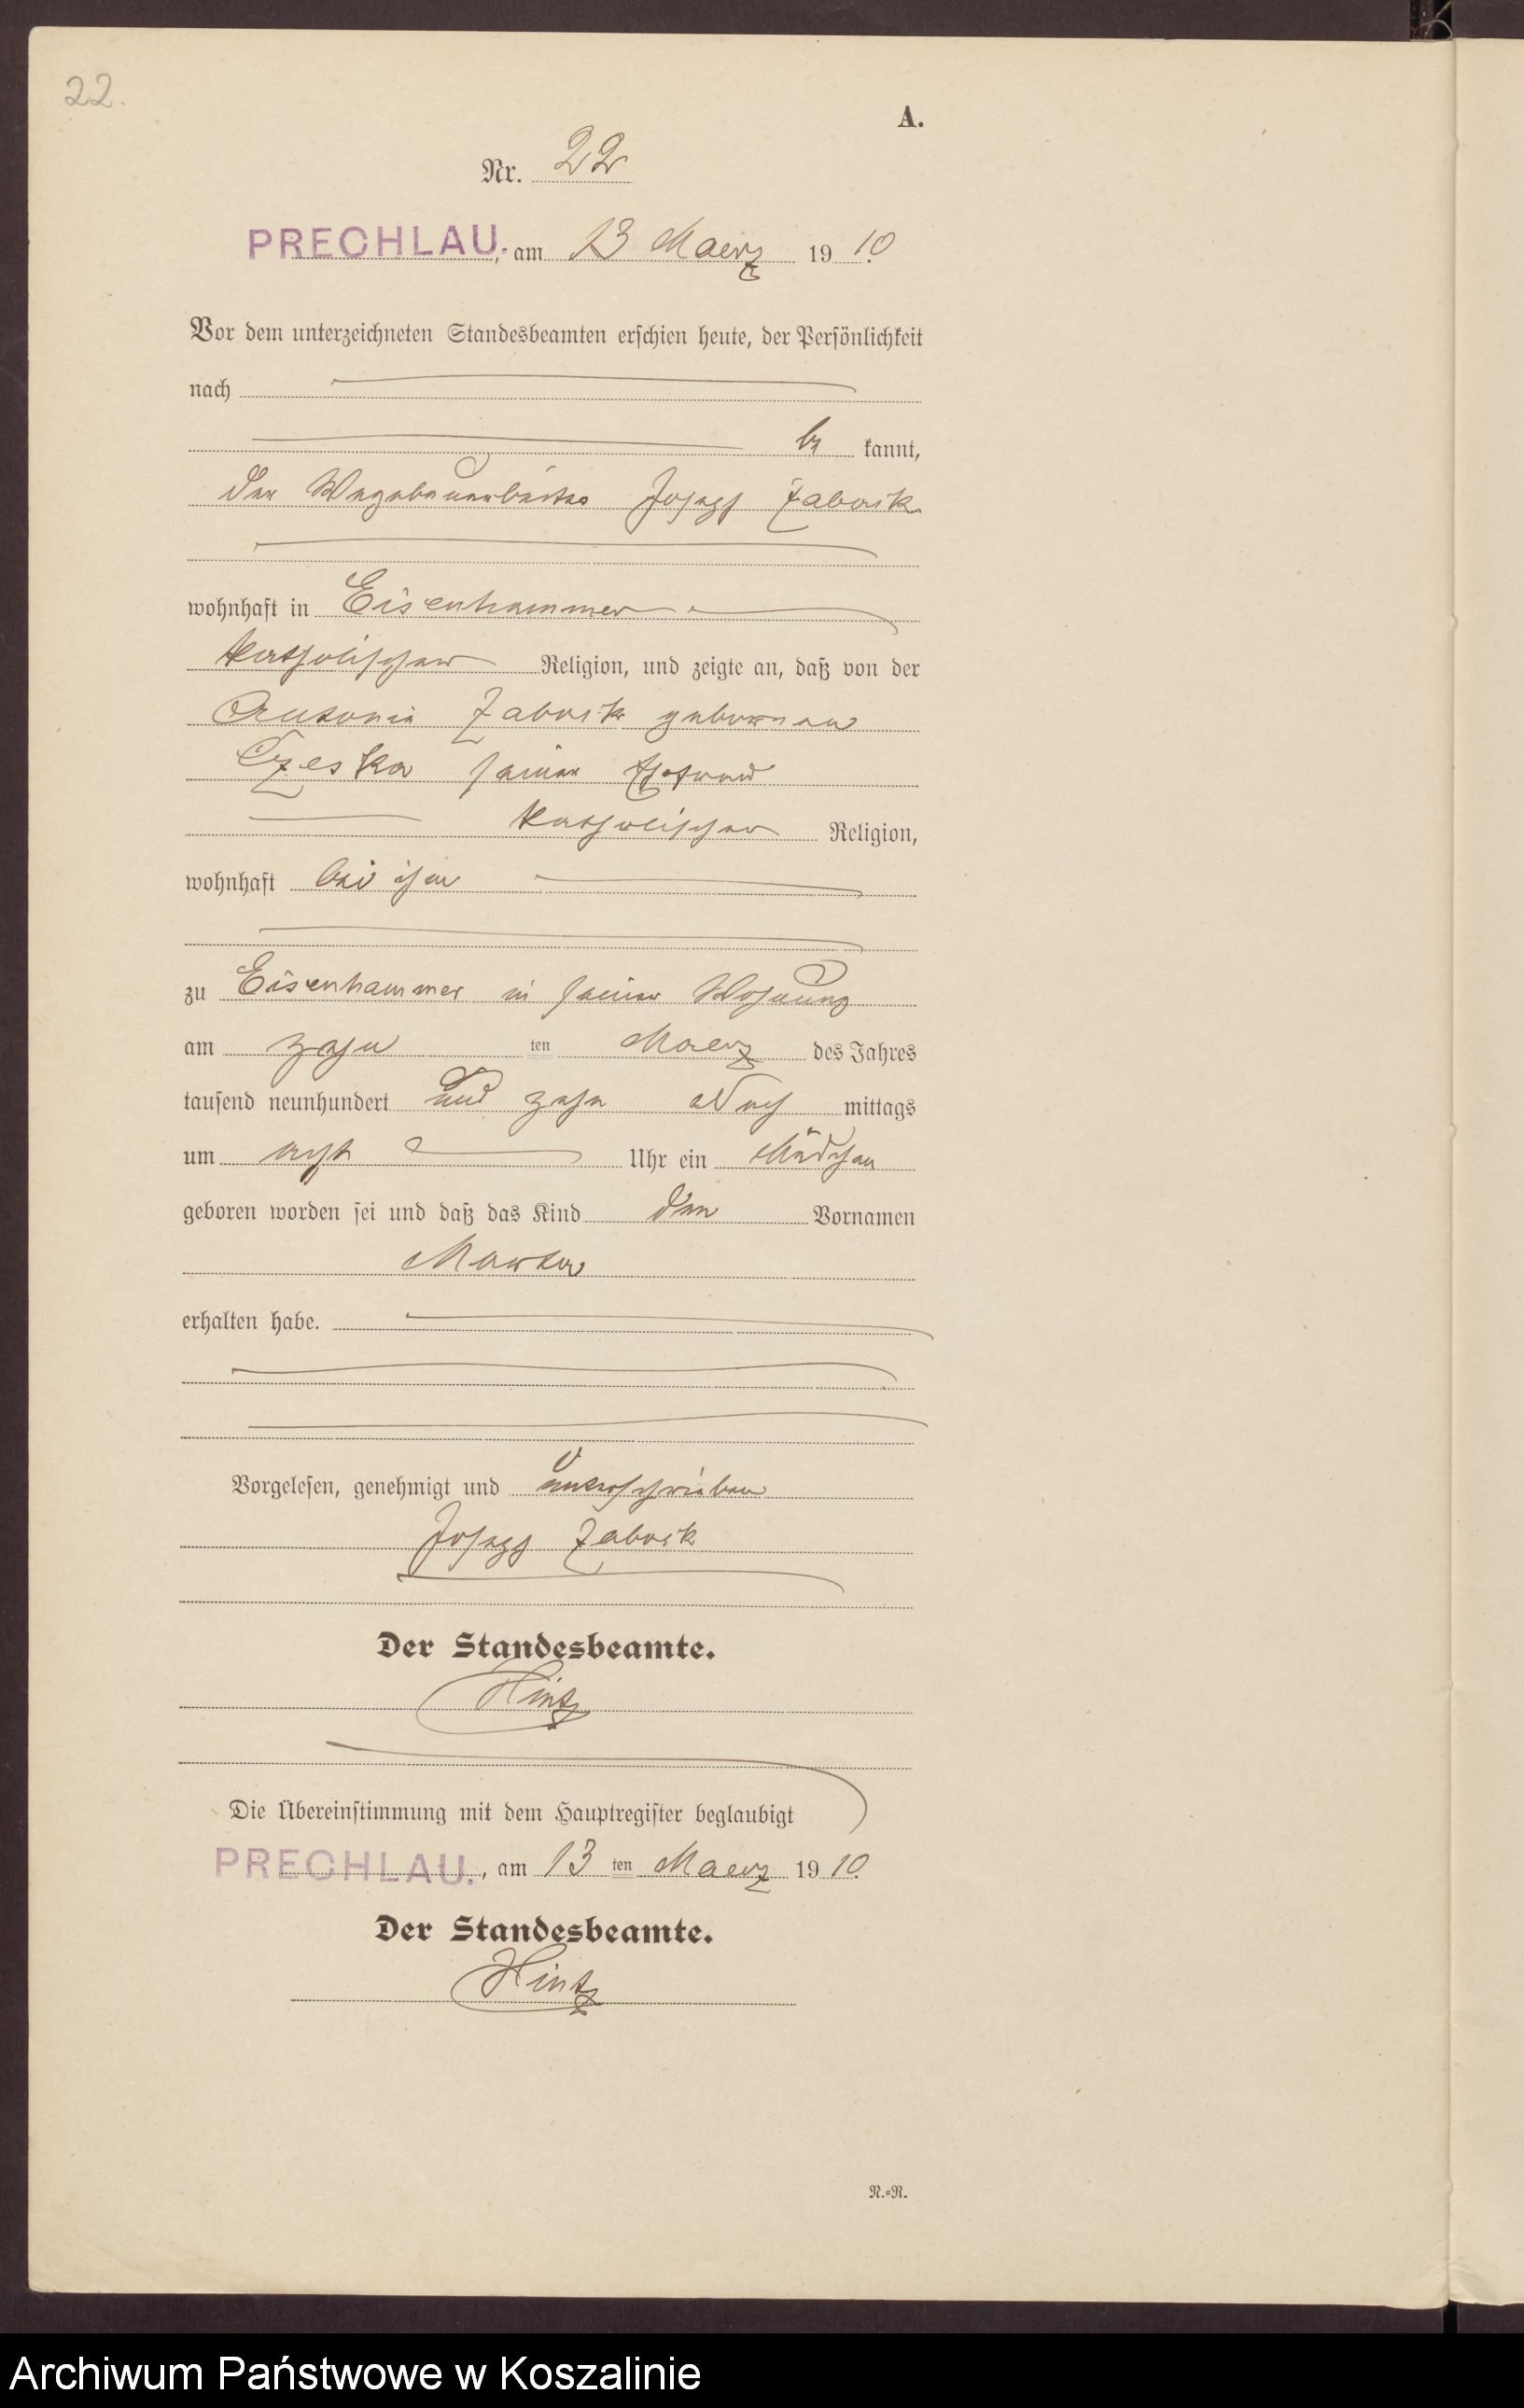 22.
A.
Nr. 22
PRECHLAU., am 13 Maerz 1910.
Vor dem unterzeichneten Standesbeamten erschien heute, der Persönlichkeit
nach
be kannt,
der Wegebauarbeiter Josepf Zabork
wohnhaft in Eisenhammer
katholischer Religion, und zeigte an, daß von der
Antonie Zabork geborenen
Czeska seiner Ehefrau
katholischer Religion,
wohnhaft bei ihm
zu Eisenhammer in seiner Wohnung
am zehn ten Maerz des Jahres
tausend neunhundert und zehn Nach mittags
um acht Uhr ein Mädchen
geboren worden sei und daß das Kind den Vornamen
Marta
erhalten habe.
Vorgelesen, genehmigt und unterschrieben
Josepf Zabork
Der Standesbeamte.
Hintz
Die Übereinstimmung mit dem Hauptregister beglaubigt
PRECHLAU., am 13 ten Maerz 1910.
Der Standesbeamte.
Hintz
N.=R.
Archiwum Państwowe w Koszalinie